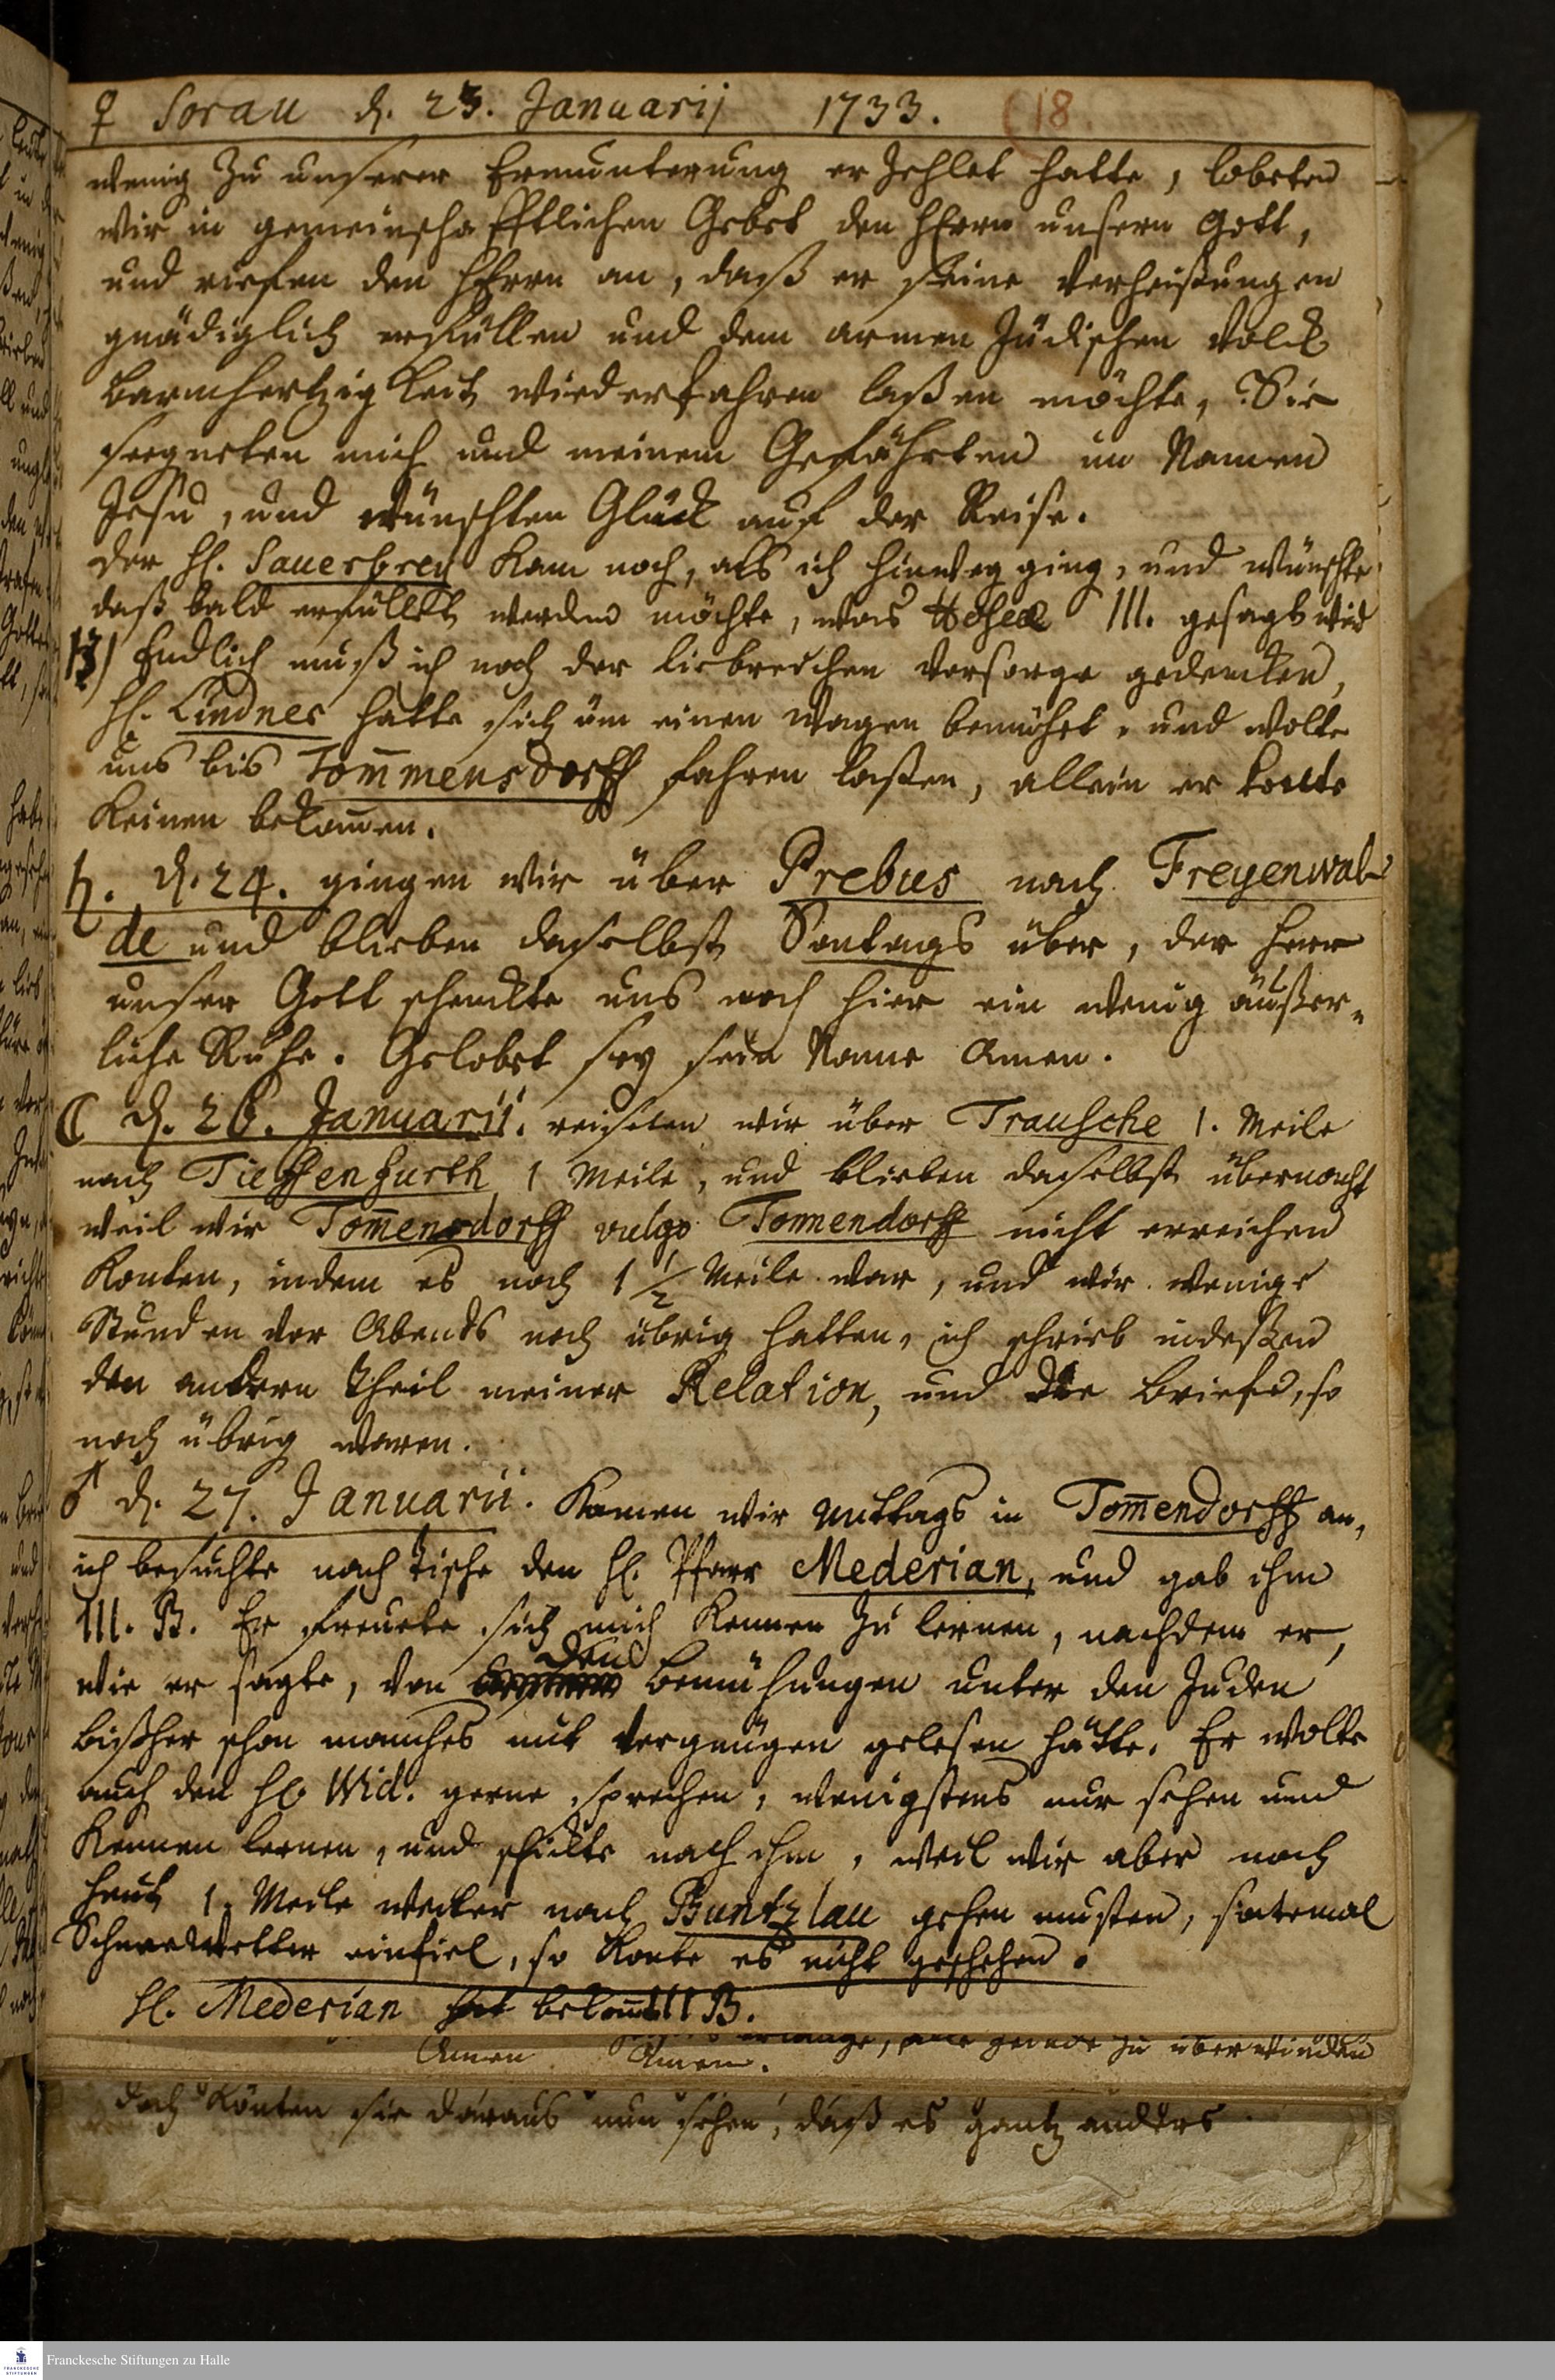 ♀ Sorau d. 23. Januarij 1733. (18.
wenig zu unserer Ermunterung erzehlet hatte, lobeten
wir in gemeinschafftlichen Gebet den HErrn unsern Gott,
und riefen den HErrn an, daß er seine Verheißungen
gnädiglich erfüllen und dem armen Jüdischen Volck
Barmhertzigkeit wiederfahren laßen möchte, Sie
seegneten mich und meinem Gefährten im Namen
Jesu, und wünschten Glück auf der Reise.
der H. Sauerbrey kam noch, als ich hinweg ging, und wünschte
daß bald erfüllet werden möchte, was Hoseæ III. gesagt wird
13) Endlich muß ich noch der liebreichen Vorsorge gedencken,
H. Lindner hatte sich üm einen Wagen bemühet, und wolte
uns bis Tom̄mensdorff fahren laßen, allein er konte
keinen bekom̄en.
♄. d. 24. gingen wir über Prebus nach Freyenwal-
de und blieben daselbst Sontags über, der Herr
unser Gott schenckte uns noch hier ein wenig äußer-
liche Ruhe. Gelobet sey sein Name Amen.
☾ d. 26. Januarii. reiseten wir über Trausche 1. Meile
nach Tieffenfurth 1 Meile, und blieben daselbst übernacht
weil wir Tom̄ensdorff vulgo Tommendorff nicht erreichen
konten, indem es noch 1 1/2 Meile war, und wir wenige
Stunden vor Abends noch übrig hatten, ich schrieb indeßen
den andern Theil meiner Relation, und die Briefe, so
noch übrig waren.
♂ d. 27. Januarii. kamen wir Mittags in Tom̄endorff an,
ich besuchte nach Tische den H. Pfarr Mederian, und gab ihm
III. B. Er freuete sich mich kennen zu lernen, nachdem er,
wie er sagte, von den Bemühungen unter den Juden
bißher schon manches mit Vergnügen gelesen hätte. Er wolte
auch den H. Wid. gerne sprechen, wenigstens nur sehen und
kennen lernen, und schickte nach ihm, weil wir aber noch
heut 1. Meile weiter nach Buntzlau gehen musten, sintemal
Schneewetter einfiel, so konte es nicht geschehen.
H. Mederian hat bekom̄t III B.
zu überwinden
Amen Amen.
doch könten sie daraus nun sehen, daß es gantz anders
Franckesche Stiftungen zu Halle